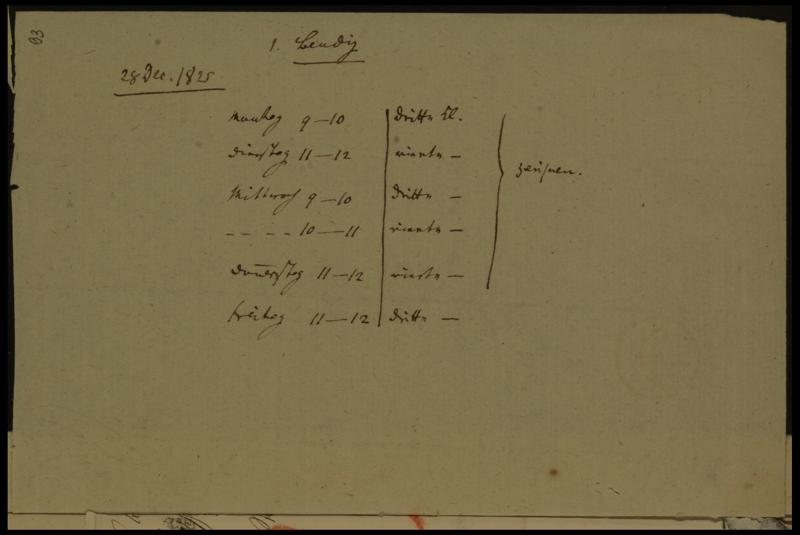 93
1. Bendix
28 Dec. 1825
Montag 9–10 dritte Cl.
Dienstag 11–12 vierte –
Mittwoch 9–10 dritte –
– – – – 10–11 vierte –
Donnerstag 11–12 vierte –
Freitag 11–12 dritte –
zeichnen.